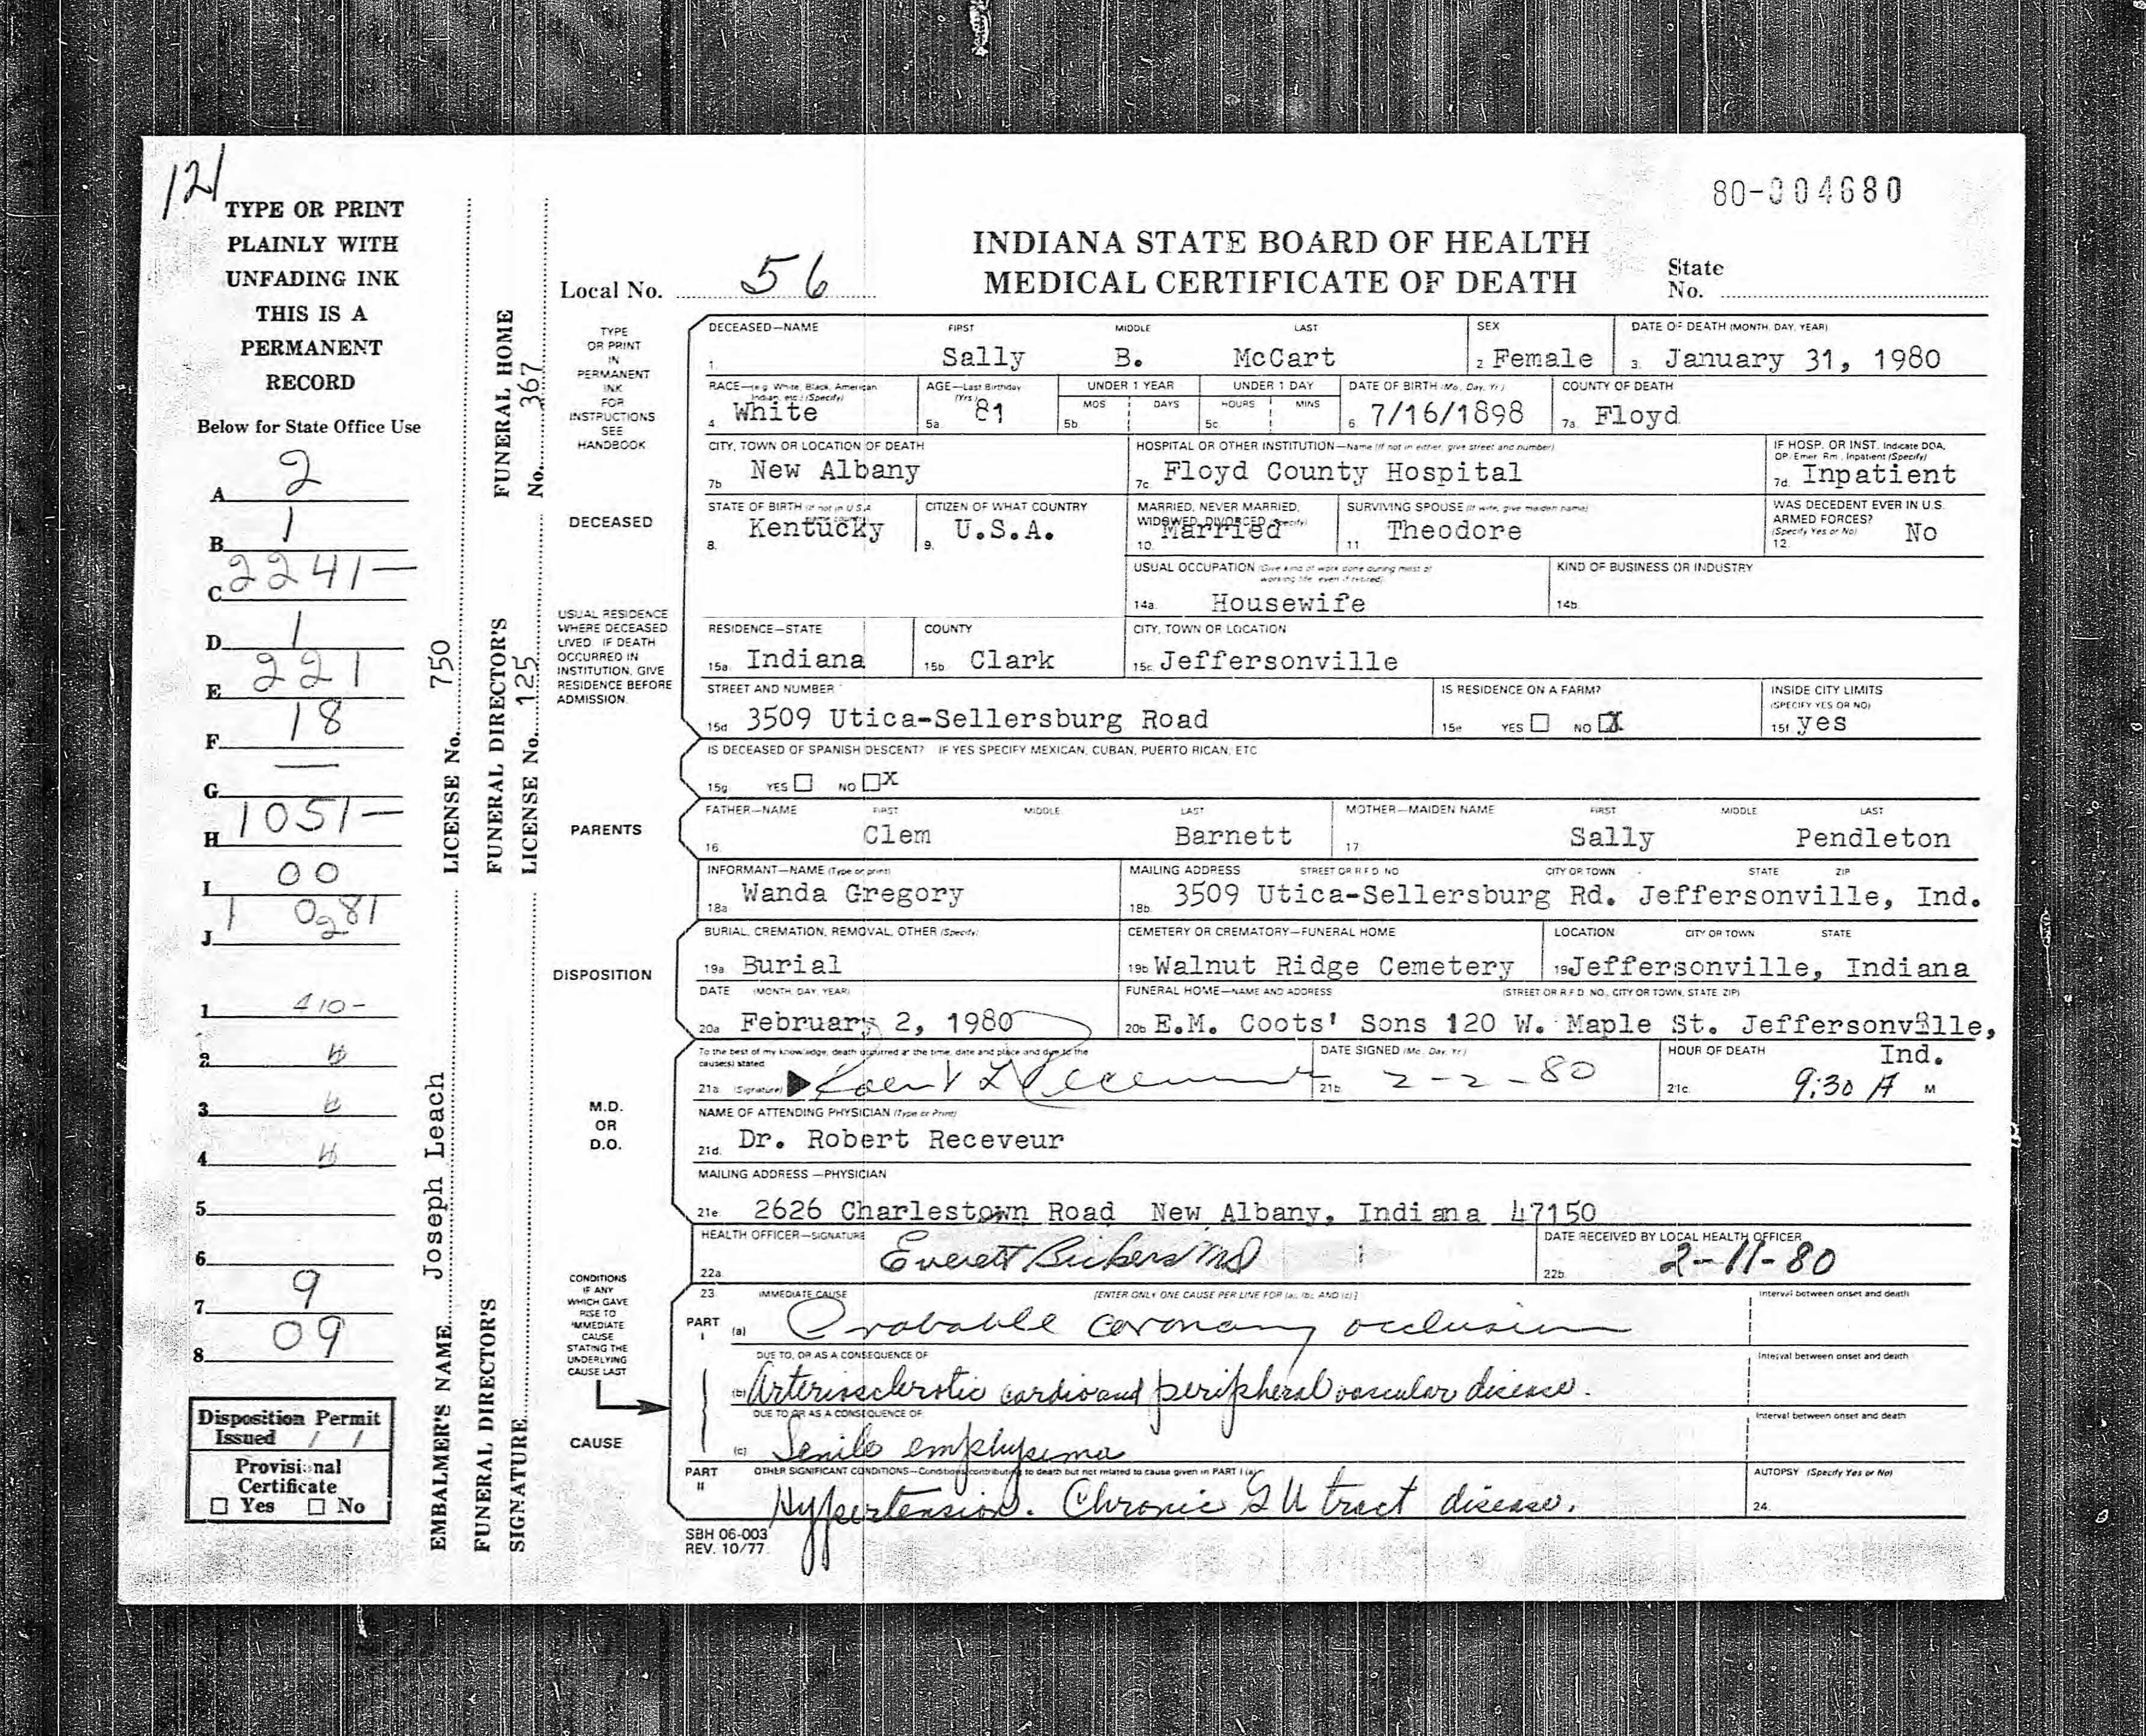 121
80-004680
TYPE OR PRINT
PLAINLY WITH
UNFADING INK
THIS IS A
PERMANENT
RECORD
Below for State Office Use
A 2
B 1
C 2241-
D 1
E 221
F 18
G —
H 1051-
I 00
J 1 0281
1 410-
2
3
4
5
6
7 9
8 09
Disposition Permit
Issued / /
Provisional
Certificate
☐ Yes ☐ No
EMBALMER'S NAME Joseph Leach LICENSE No. 750
FUNERAL DIRECTOR'S
SIGNATURE
FUNERAL DIRECTOR'S
LICENSE No. 125
FUNERAL HOME
No. 367
INDIANA STATE BOARD OF HEALTH
MEDICAL CERTIFICATE OF DEATH
Local No. 56
State
No.
TYPE
OR PRINT
IN
PERMANENT
INK
FOR
INSTRUCTIONS
SEE
HANDBOOK
DECEASED—NAME FIRST MIDDLE LAST SEX DATE OF DEATH (MONTH, DAY, YEAR)
1. Sally B. McCart 2. Female 3. January 31, 1980
RACE—(e.g. White, Black, American Indian, etc.) (Specify) AGE—Last Birthday (Yrs.) UNDER 1 YEAR UNDER 1 DAY DATE OF BIRTH (Mo., Day, Yr.) COUNTY OF DEATH
MOS DAYS HOURS MINS
4. White 5a. 81 5b. 5c. 6. 7/16/1898 7a. Floyd
CITY, TOWN OR LOCATION OF DEATH HOSPITAL OR OTHER INSTITUTION—Name (If not in either, give street and number) IF HOSP. OR INST. Indicate DOA, OP. Emer. Rm., Inpatient (Specify)
7b. New Albany 7c. Floyd County Hospital 7d. Inpatient
DECEASED
STATE OF BIRTH (If not in U.S.A. name country) CITIZEN OF WHAT COUNTRY MARRIED, NEVER MARRIED, WIDOWED, DIVORCED (Specify) SURVIVING SPOUSE (If wife, give maiden name) WAS DECEDENT EVER IN U.S. ARMED FORCES? (Specify Yes or No)
8. Kentucky 9. U.S.A. 10. Married 11. Theodore 12. No
USUAL OCCUPATION (Give kind of work done during most of working life, even if retired) KIND OF BUSINESS OR INDUSTRY
14a. Housewife 14b.
USUAL RESIDENCE
WHERE DECEASED
LIVED. IF DEATH
OCCURRED IN
INSTITUTION, GIVE
RESIDENCE BEFORE
ADMISSION.
RESIDENCE—STATE COUNTY CITY, TOWN OR LOCATION
15a. Indiana 15b. Clark 15c. Jeffersonville
STREET AND NUMBER IS RESIDENCE ON A FARM? INSIDE CITY LIMITS (SPECIFY YES OR NO)
15d. 3509 Utica-Sellersburg Road 15e. YES ☐ NO ☒ 15f. yes
IS DECEASED OF SPANISH DESCENT? IF YES SPECIFY MEXICAN, CUBAN, PUERTO RICAN, ETC.
15g. YES ☐ NO ☐ X
PARENTS
FATHER—NAME FIRST MIDDLE LAST MOTHER—MAIDEN NAME FIRST MIDDLE LAST
16. Clem Barnett 17. Sally Pendleton
INFORMANT—NAME (Type or print) MAILING ADDRESS STREET OR R.F.D. NO. CITY OR TOWN STATE ZIP
18a. Wanda Gregory 18b. 3509 Utica-Sellersburg Rd. Jeffersonville, Ind.
DISPOSITION
BURIAL, CREMATION, REMOVAL, OTHER (Specify) CEMETERY OR CREMATORY—FUNERAL HOME LOCATION CITY OR TOWN STATE
19a. Burial 19b. Walnut Ridge Cemetery 19c. Jeffersonville, Indiana
DATE (MONTH, DAY, YEAR) FUNERAL HOME—NAME AND ADDRESS (STREET OR R.F.D. NO., CITY OR TOWN, STATE, ZIP)
20a. February 2, 1980 20b. E.M. Coots' Sons 120 W. Maple St. Jeffersonville,
Ind.
M.D.
OR
D.O.
To the best of my knowledge, death occurred at the time, date and place and due to the cause(s) stated. DATE SIGNED (Mo., Day, Yr.) HOUR OF DEATH
21a. (Signature) 21b. 2-2-80 21c. 9:30 A M
NAME OF ATTENDING PHYSICIAN (Type or Print)
21d. Dr. Robert Receveur
MAILING ADDRESS—PHYSICIAN
21e. 2626 Charlestown Road New Albany, Indiana 47150
HEALTH OFFICER—SIGNATURE DATE RECEIVED BY LOCAL HEALTH OFFICER
22a. Everett Bickers MD 22b. 2-11-80
CONDITIONS
IF ANY
WHICH GAVE
RISE TO
IMMEDIATE
CAUSE
STATING THE
UNDERLYING
CAUSE LAST
CAUSE
23. IMMEDIATE CAUSE [ENTER ONLY ONE CAUSE PER LINE FOR (a), (b), AND (c)] Interval between onset and death
PART I (a) Probable coronary occlusion
DUE TO, OR AS A CONSEQUENCE OF Interval between onset and death
(b) Arteriosclerotic cardio and peripheral vascular disease.
DUE TO, OR AS A CONSEQUENCE OF Interval between onset and death
(c) Senile emphysema
PART II OTHER SIGNIFICANT CONDITIONS—Conditions contributing to death but not related to cause given in PART I (a) AUTOPSY (Specify Yes or No)
Hypertension. Chronic GU tract disease. 24.
SBH 06-003
REV. 10/77